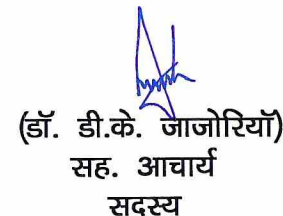 (डॉ. डी.के. जाजोरियॉ)
सह. आचार्य
सदस्य